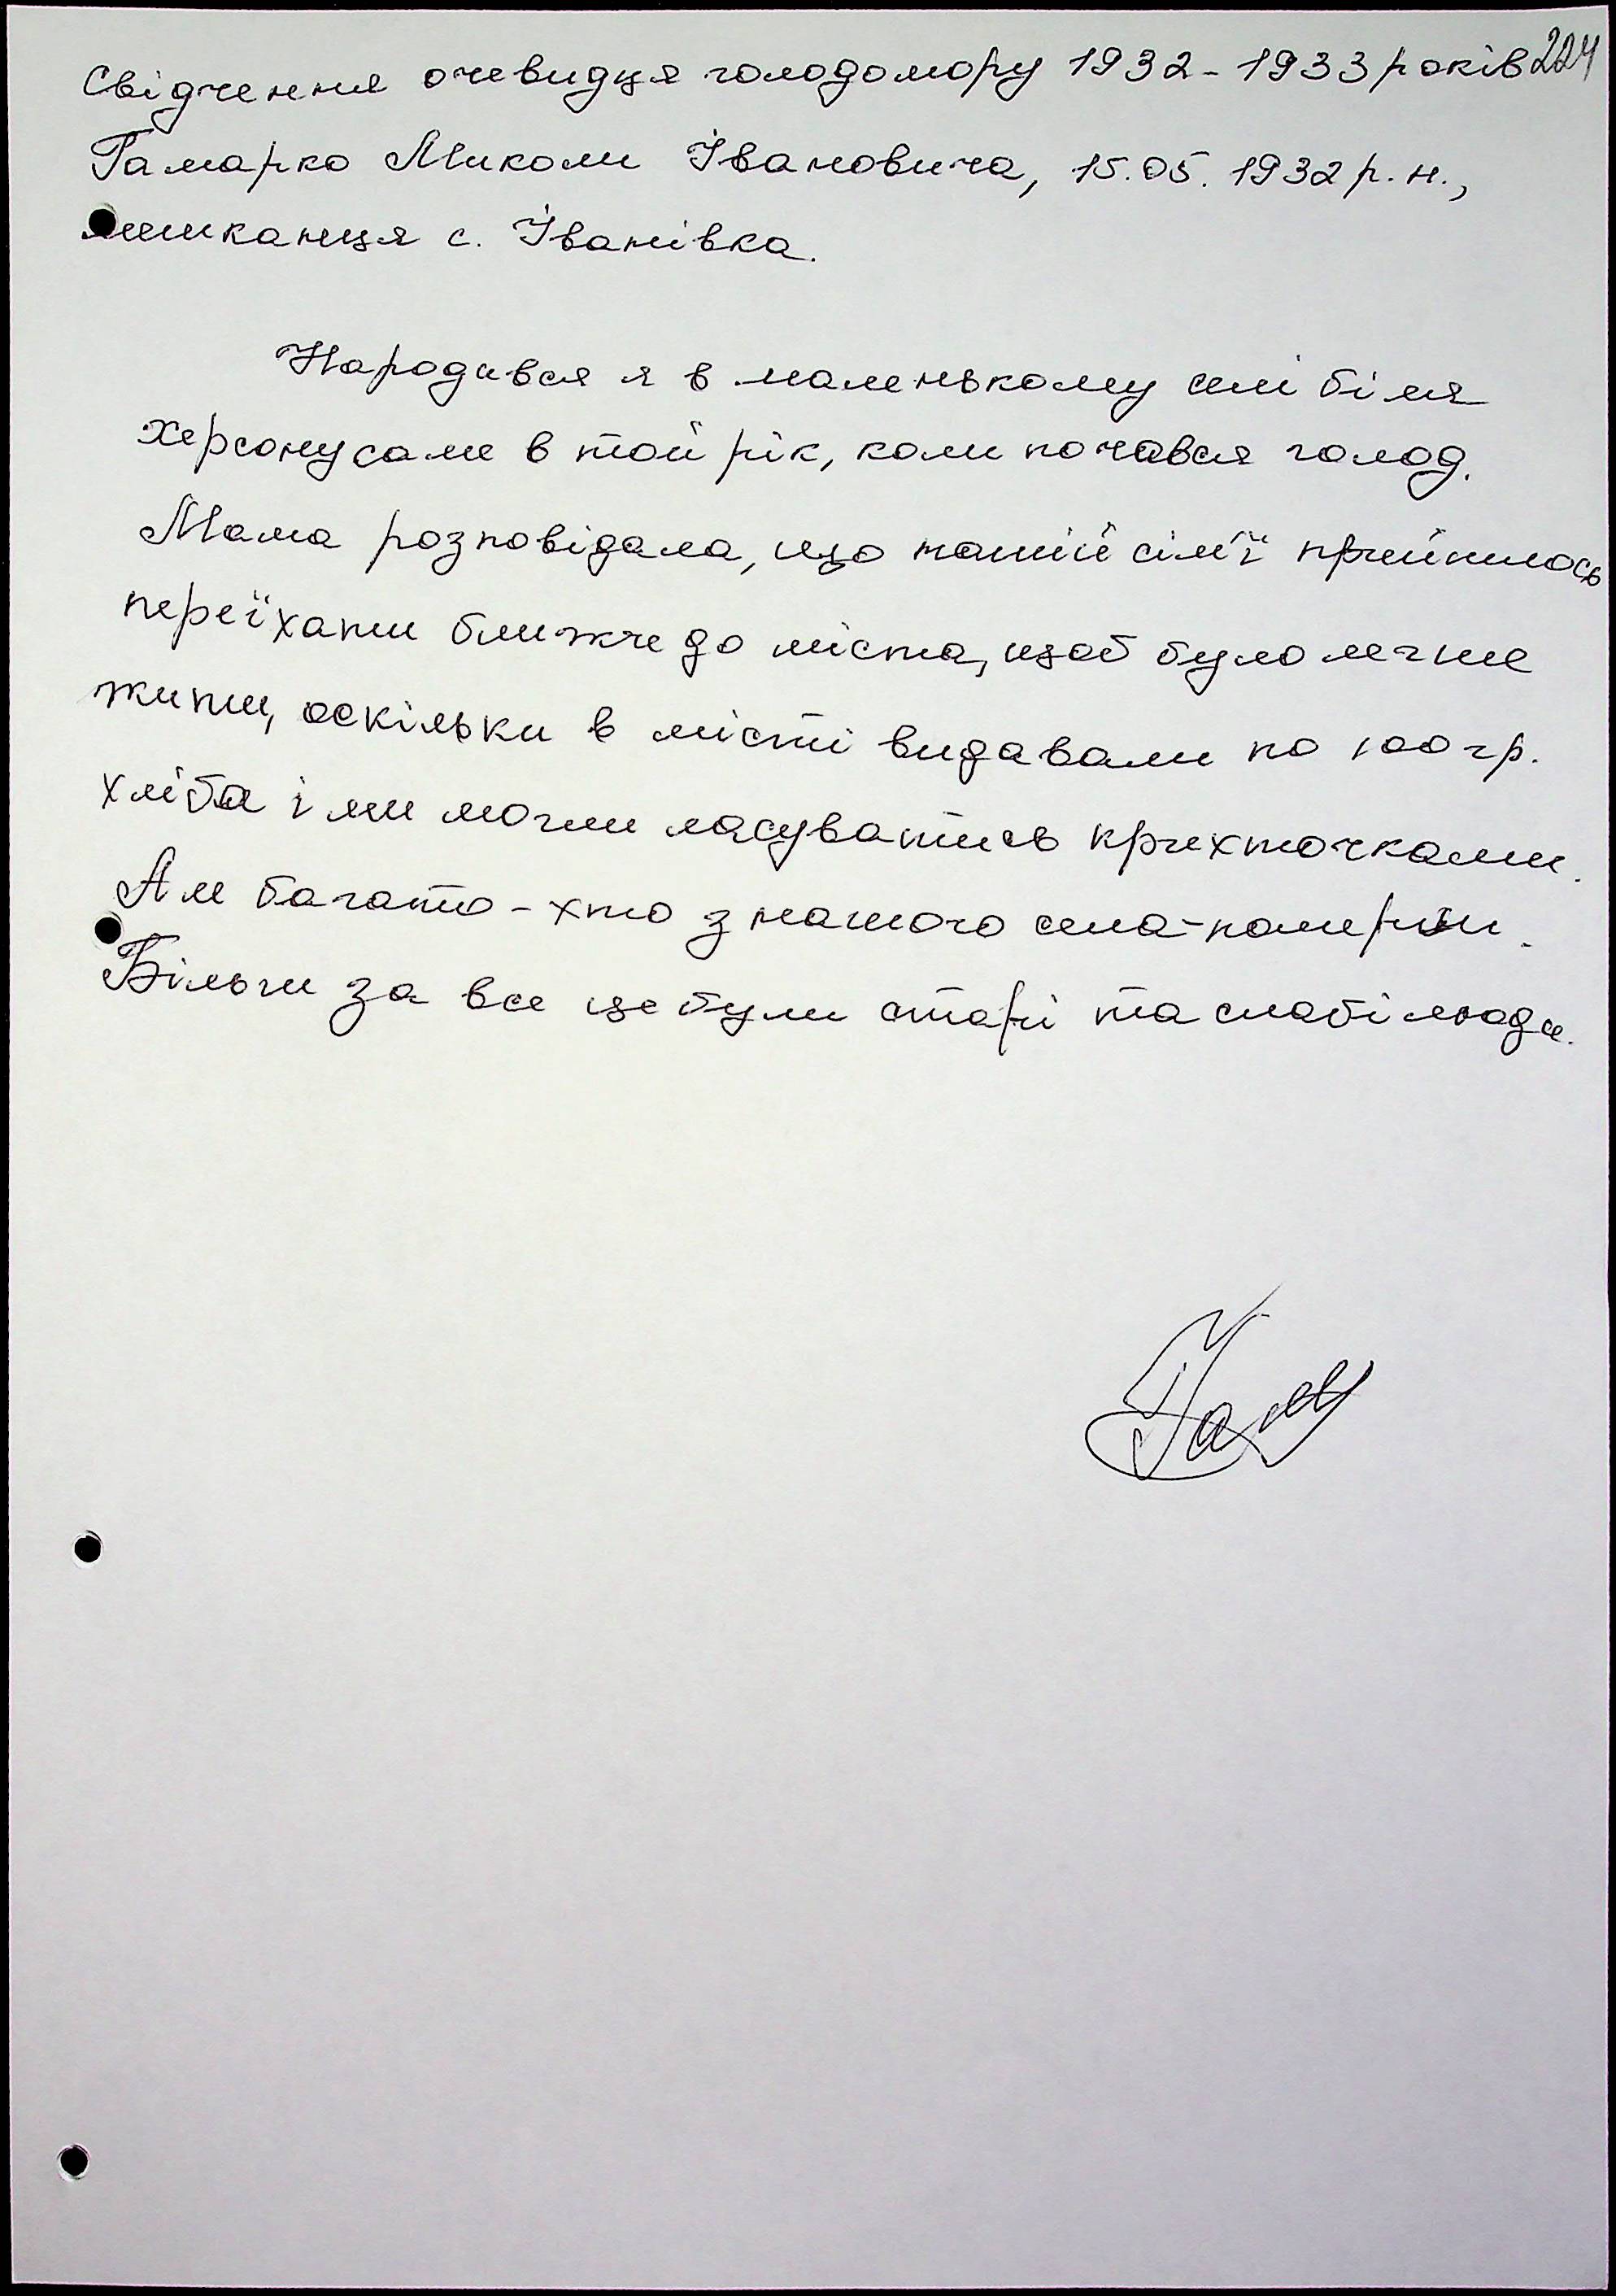 Свідчення очевидця голодомору 1932-1933 років 224
Гамарко Миколи Івановича, 15.05.1932 р.н.,
мешканця с. Іванівка.
Народився я в маленькому селі біля
Херсону саме в той рік, коли почався голод.
Мама розповідала, що нашій сім'ї прийшлось
переїхати ближче до міста, щоб було легше
жити, оскільки в місті видавали по 100 гр.
хліба і ми могли ласуватись крихточками.
Але багато-хто з нашого села-померли.
Більш за все це були старі та слабі люди.